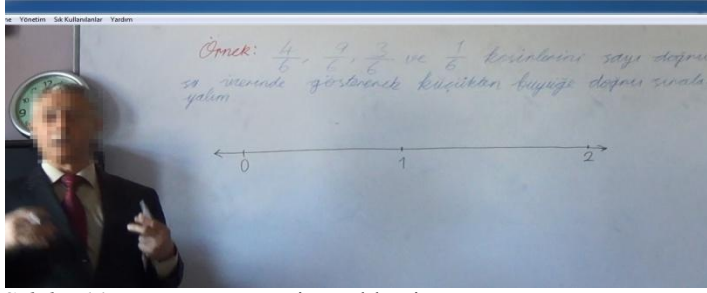 me Yönetim Sık Kullanılanlar Yardım
Örnek: 4/6, 9/6, 3/6 ve 1/6 kesirlerini sayı doğru
sı üzerinde göstererek küçükten büyüğe doğru sırala
yalım
0 1 2